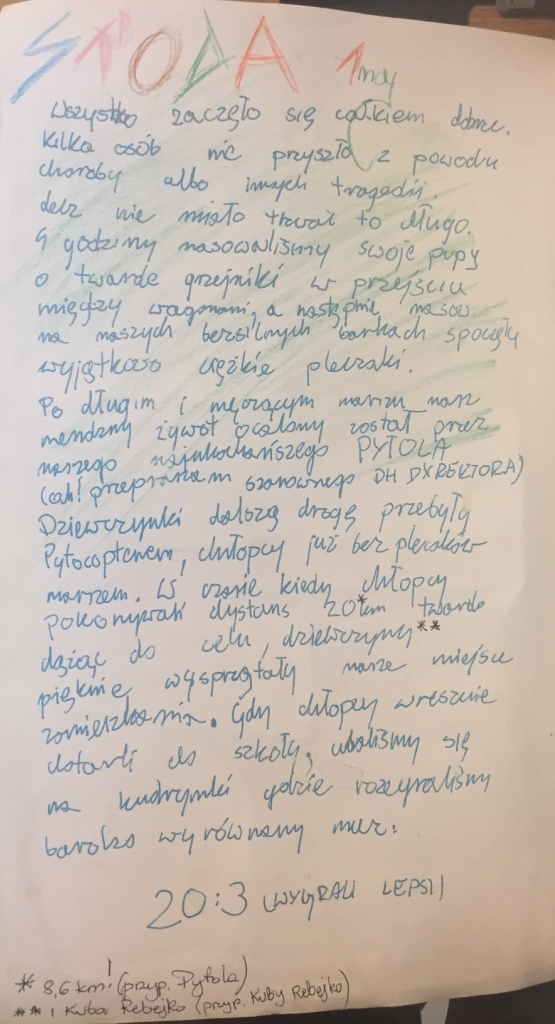 ŚRODA 1 maj
Wszystko zaczęło się całkiem dobrze.
Kilka osób nie przyszło z powodu
choroby albo innych tragedii.
Lecz nie miało trwać to długo.
4 godziny masowaliśmy swoje pupy
o twarde grzejniki w przejściu
między wagonami, a następnie masow.
na naszych bezsilnych barkach spoczęły
wyjątkowo ciężkie plecaki.
Po długim i męczącym marszu nasz
mendzny żywot ocalony został przez
naszego najukochańszego PYTOLA
(ach! przepraszam szanownego DH DYREKTORA)
Dziewczynki dalszą drogę przebyły
Pytocopterem, chłopcy już bez plecaków
marszem. W czasie kiedy chłopcy
pokonywali dystans 20*km twardo
dążąc do celu, dziewczyny**
pięknie wysprzątały nasze miejsce
zamieszkania. Gdy chłopcy wreszcie
dotarli do szkoły, udaliśmy się
na gdzie rozegraliśmy
bardzo wyrównany mecz:
20:3 (WYGRALI LEPSI)
* 8,6 km! (przyp. Pytola)
** i Kuba Rebejko (przyp. Kuby Rebejko)